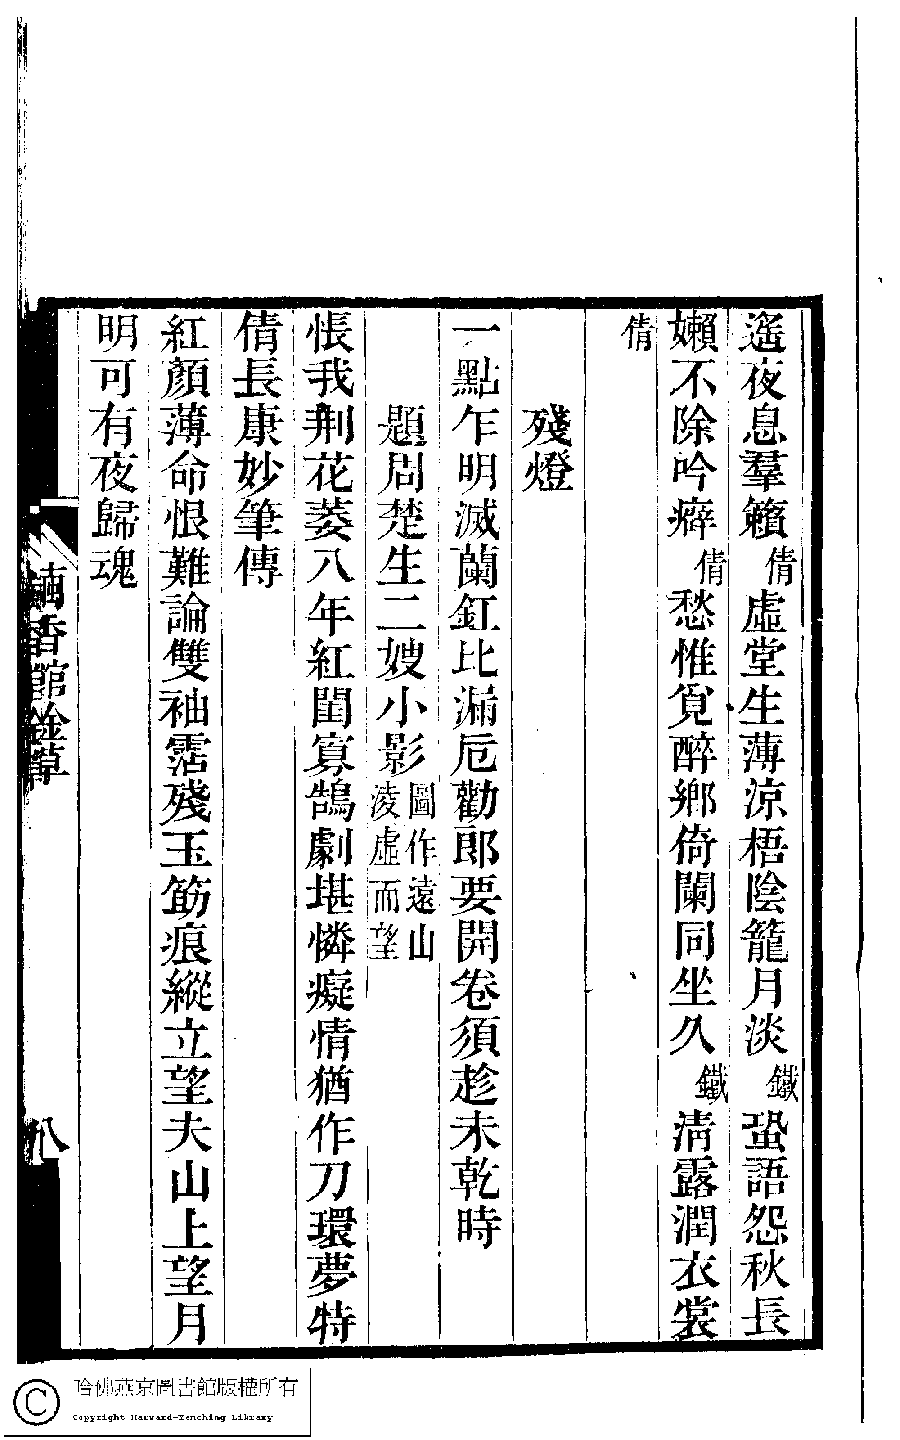 遙夜息羣籟倩虛堂生薄涼梧陰籠月淡鐵蛩語怨秋長
嬾不除吟癖倩愁惟覓醉鄉倚闌同坐久鐵淸露潤衣裳
倩
殘燈
一點乍明滅蘭釭比漏卮勸郎要開卷須趁未乾時
題周楚生二嫂小影圖作遠山淩虛而望
悵我荆花萎八年紅閨寡鵠劇堪憐癡情猶作刀環夢特
倩長康妙筆傳
紅顏薄命恨難論雙袖霑殘玉筯痕縱立望夫山上望月
明可有夜歸魂
香館
草
八
哈佛燕京圖書館版權所有
Copyright Harvard-Yenching Library